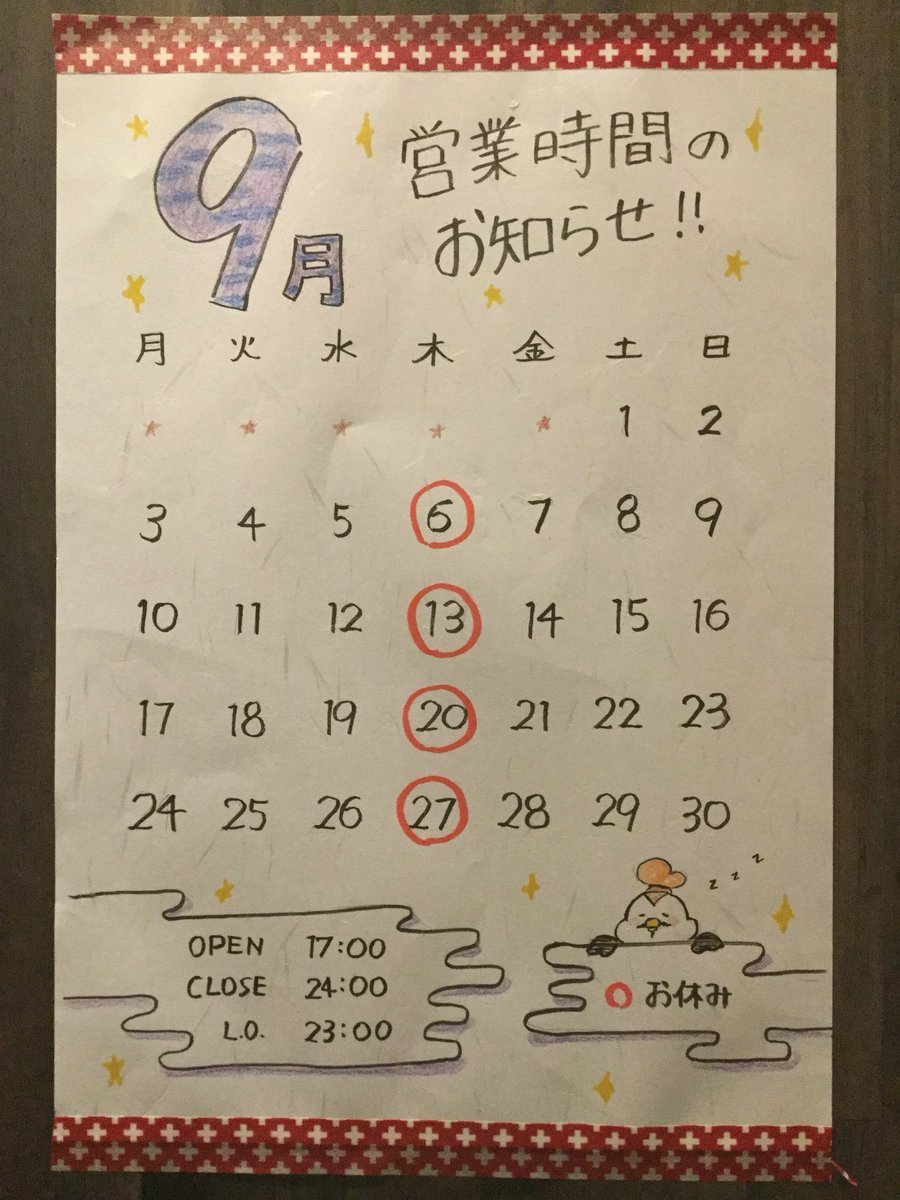 9月
営業時間の
お知らせ!!
月 火 水 木 金 土 日
1 2
3 4 5 6 7 8 9
10 11 12 13 14 15 16
17 18 19 20 21 22 23
24 25 26 27 28 29 30
z z z
OPEN 17:00
CLOSE 24:00
L.O. 23:00
お休み